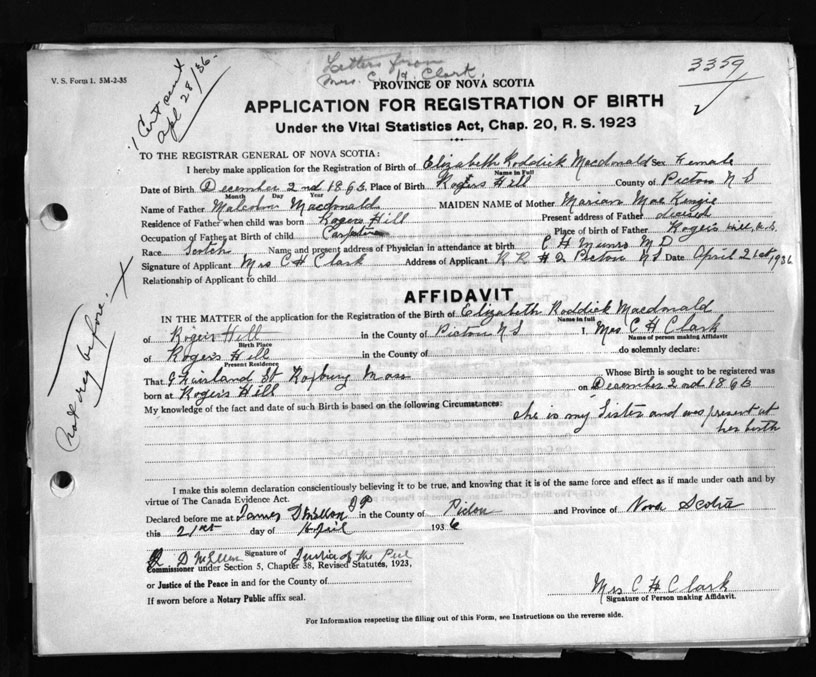 V. S. Form 1. 5M-2-35
1 Cert sent
Apl 28/36.
Letters from
Mrs. C. H. Clark.
3359
PROVINCE OF NOVA SCOTIA
APPLICATION FOR REGISTRATION OF BIRTH
Under the Vital Statistics Act, Chap. 20, R. S. 1923
TO THE REGISTRAR GENERAL OF NOVA SCOTIA:
I hereby make application for the Registration of Birth of Elizabeth Roddick Macdonald Sex Female
Name in Full
Date of Birth December 2nd 1863. Place of Birth Rogers Hill County of Pictou N S
Month Day Year
Name of Father Malcolm Macdonald MAIDEN NAME of Mother Marian Mac Kenzie
Residence of Father when child was born Rogers Hill Present address of Father
Occupation of Father at Birth of child Carpenter Place of birth of Father Rogers Hill, N.S.
Race Scotch Name and present address of Physician in attendance at birth C H Munro M D
Signature of Applicant Mrs C H Clark Address of Applicant R R # 2 Pictou N S Date April 21st 1936
Relationship of Applicant to child
AFFIDAVIT
IN THE MATTER of the application for the Registration of the Birth of Elizabeth Roddick Macdonald
Name in full
of Rogers Hill in the County of Pictou N S I, Mrs C H Clark
Birth Place Name of person making Affidavit
of Rogers Hill in the County of do solemnly declare:
Present Residence
That 9 Fairland St Roxbury Mass Whose Birth is sought to be registered was
born at Rogers Hill on December 2nd 1863
My knowledge of the fact and date of such Birth is based on the following Circumstances: she is my Sister and was present at
her birth
not reg before. X
I make this solemn declaration conscientiously believing it to be true, and knowing that it is of the same force and effect as if made under oath and by
virtue of The Canada Evidence Act.
Declared before me at James J P in the County of Pictou and Province of Nova Scotia
this 21st day of April 1936
Signature of Justice of the
Commissioner under Section 5, Chapter 38, Revised Statutes, 1923,
or Justice of the Peace in and for the County of
If sworn before a Notary Public affix seal.
Mrs C H Clark
Signature of Person making Affidavit.
For Information respecting the filling out of this Form, see Instructions on the reverse side.